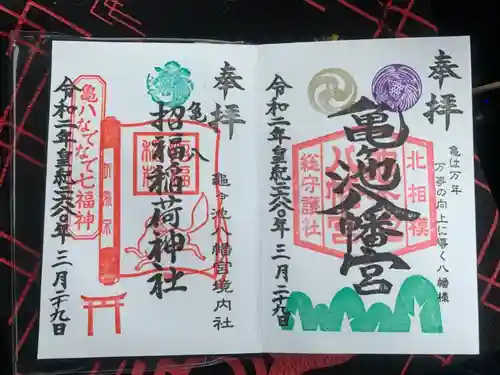 奉拝
亀は万年
万事の向上に導く八幡様
北相模
亀池八幡宮
総守護社
令和二年皇紀二六八〇年 三月二十九日
奉拝
亀八
招福稲荷神社
亀ヶ池八幡宮境内社
招福
稲荷
亀八なでなで七福神
令和二年皇紀二六八〇年 三月二十九日